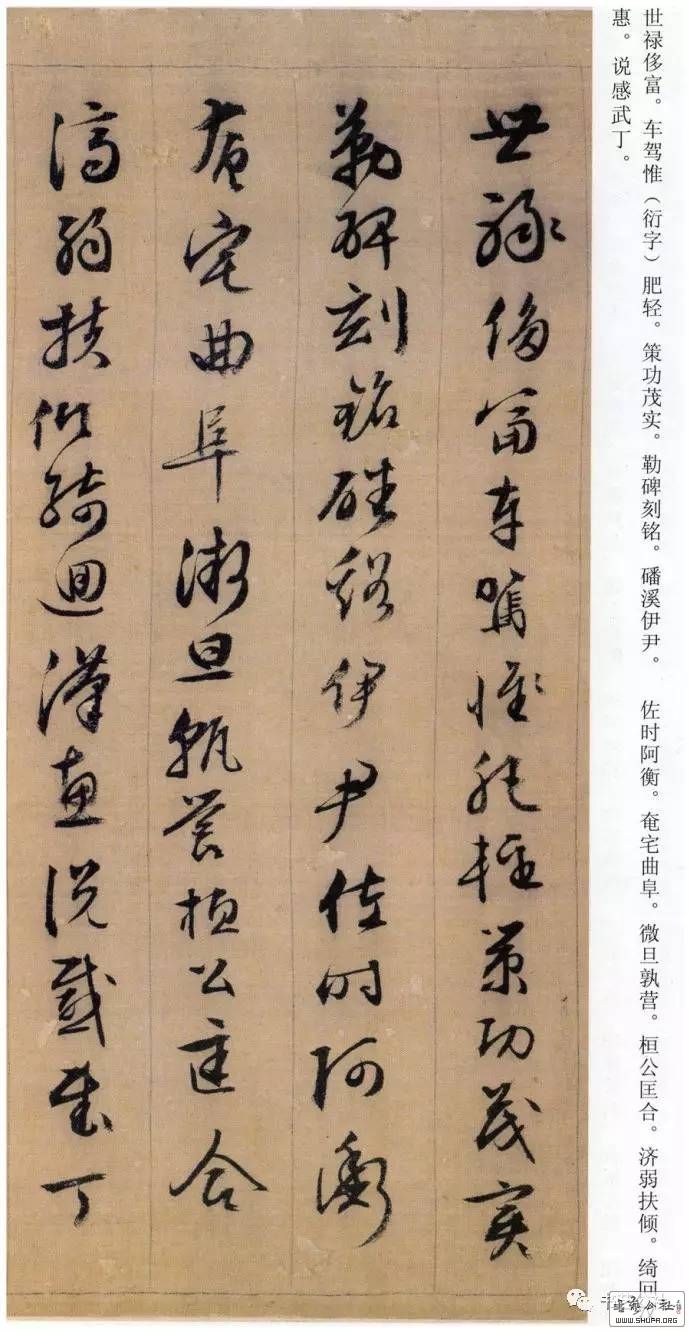 世禄侈富。车驾惟（衍字）肥轻。策功茂实。勒碑刻铭。磻溪伊尹。 佐时阿衡。奄宅曲阜。微旦孰营。桓公匡合。济弱扶倾。绮回
惠。说感武丁。
世祿侈富車駕惟肥輕策功茂實
勒碑刻銘磻谿伊尹佐時阿衡
奄宅曲阜微旦孰營桓公匡合
濟弱扶傾綺迴漢惠説感武丁
WWW.SHUPA.ORG